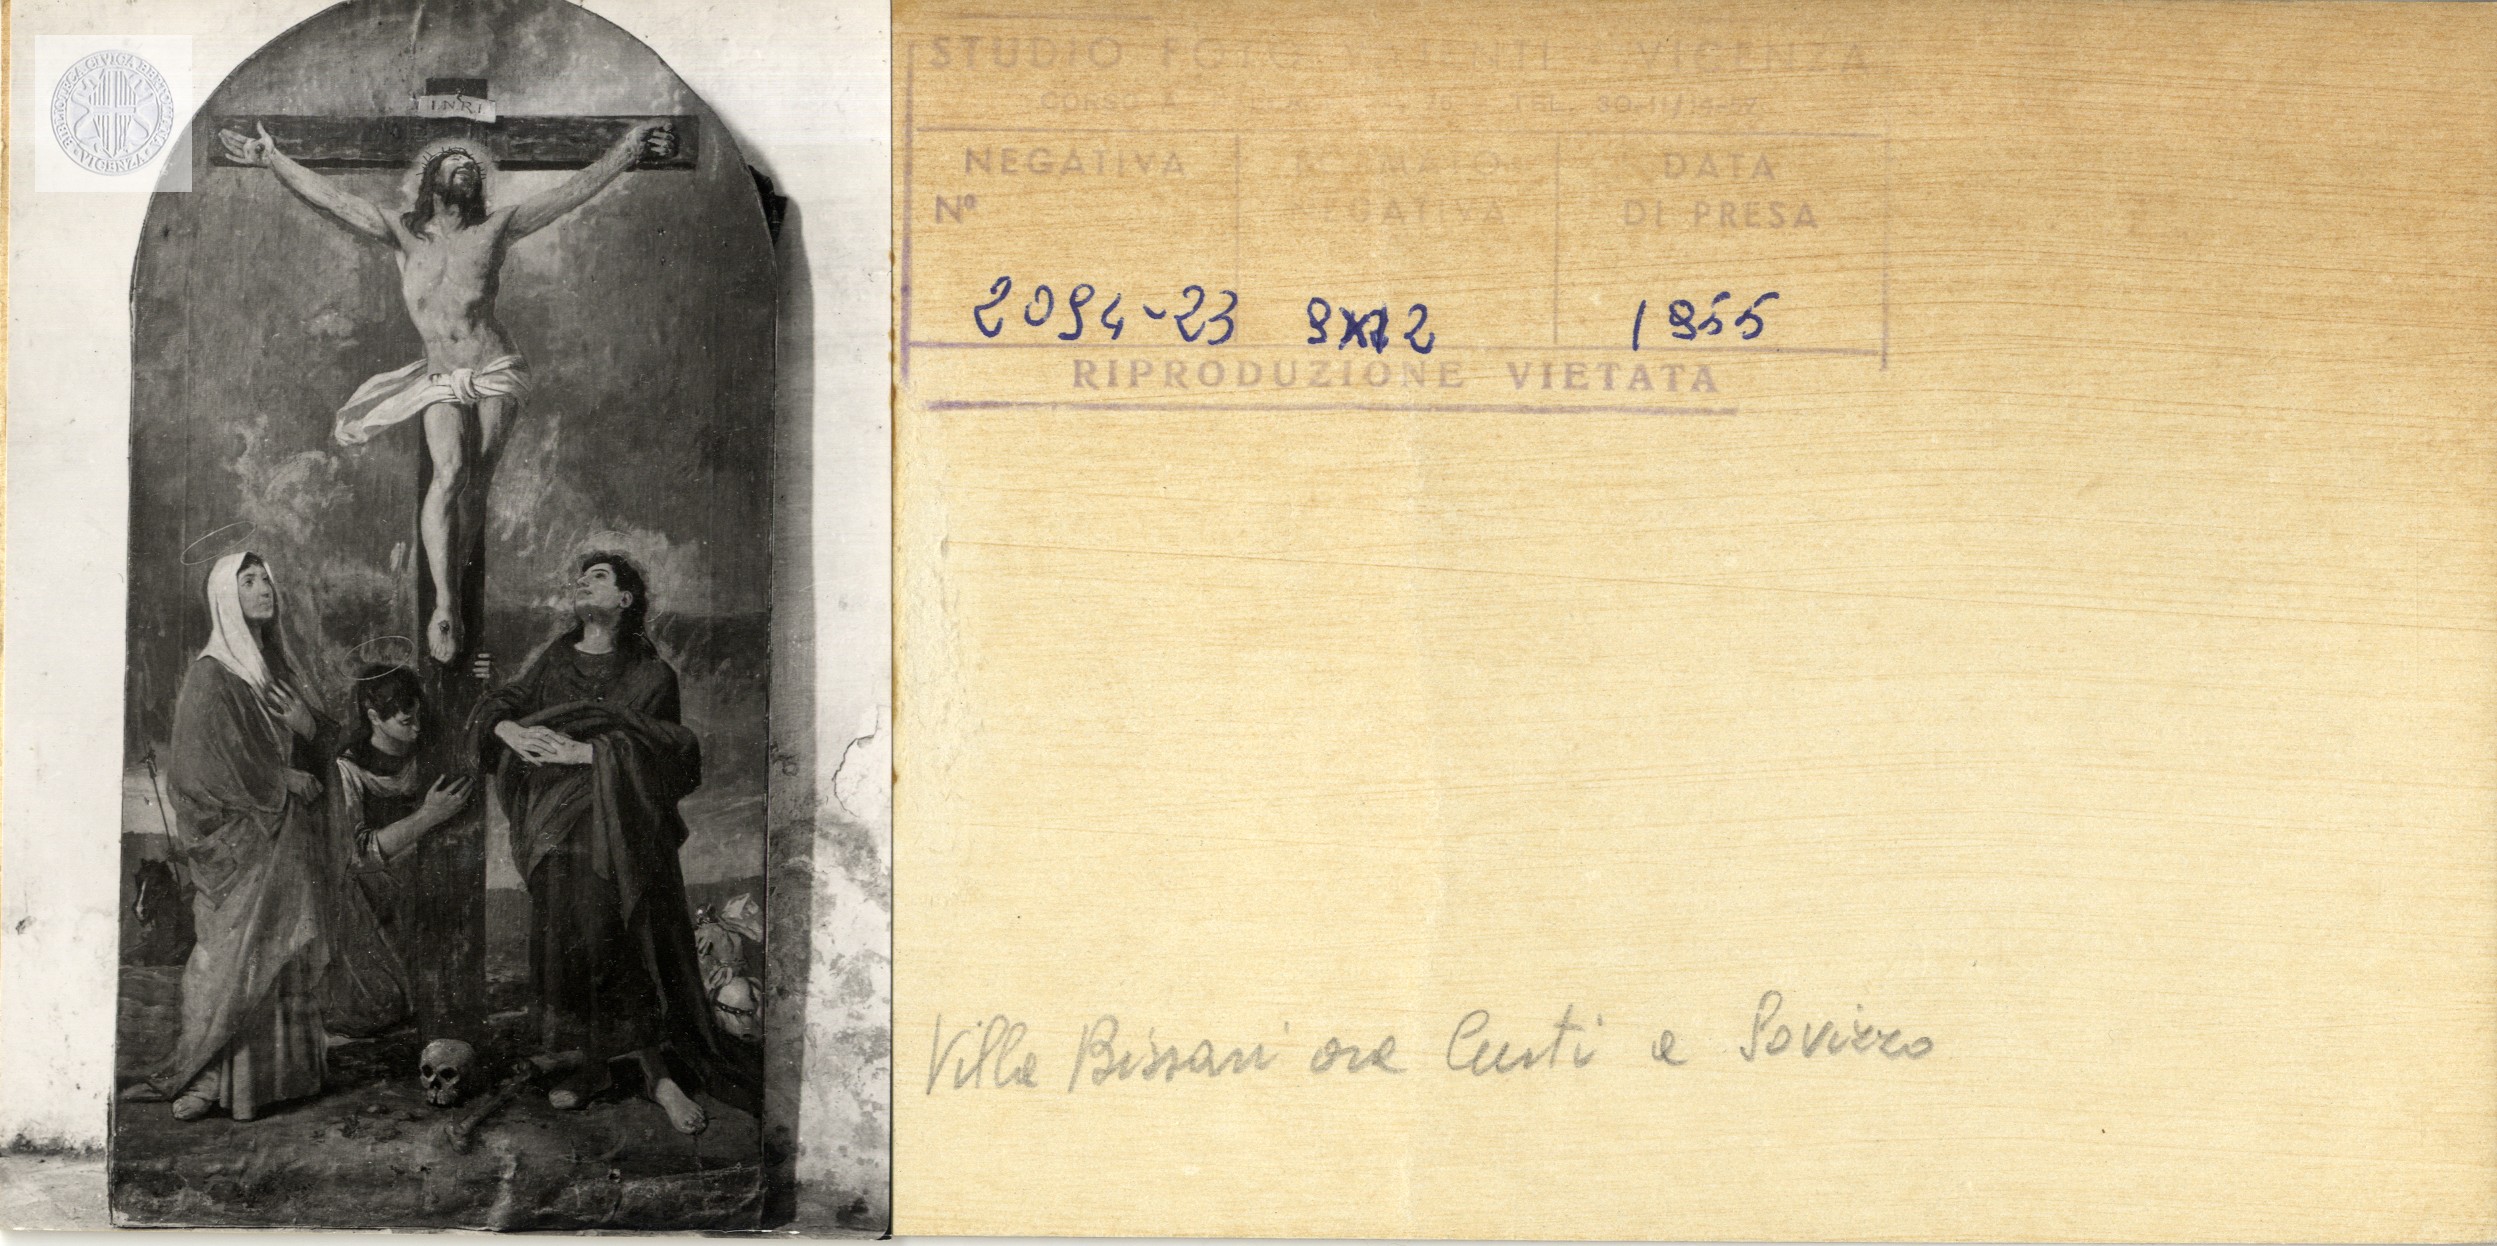 BIBLIOTECA CIVICA BERTOLIANA · VICENZA ·
INRI
STUDIO FOTO VICENZA
TEL.
NEGATIVA
Nº
FORMATO
NEGATIVA
DATA
DI PRESA
2094-23 9x12 1955
RIPRODUZIONE VIETATA
Villa Bissari ora Curti a Sovizzo